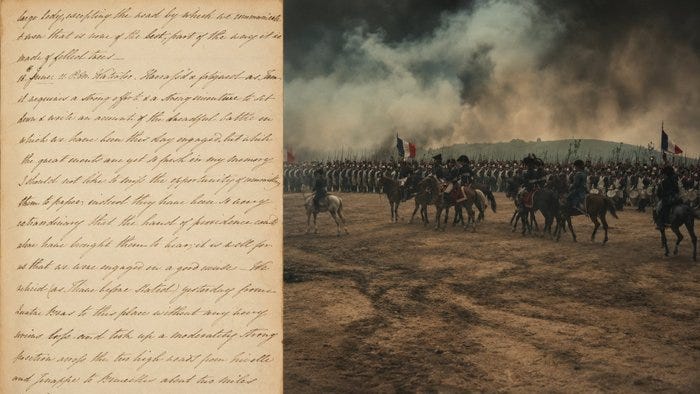 large body, excepting the road by which we communicate
& even that is none of the best, part of the way it is
made of felled trees —
18th June 11 P.M. Waterloo. Harass'd & fatigued as I am
it requires a strong effort & a strong inducement to sit
down & write an account of the dreadful battle in
which we have been this day engaged, but while
the great events are yet so fresh in my memory
I should not like to miss the opportunity of committing
them to paper, indeed they have been so very
extraordinary that the hand of providence could
alone have brought them to bear, it is well for
us that we were engaged on a good cause — We
retired (as I have before stated) yesterday from
Quatre Bras to this place without any very
serious loss and took up a moderately strong
position across the two high roads from Nivelle
and Genappe to Bruxelles about two miles